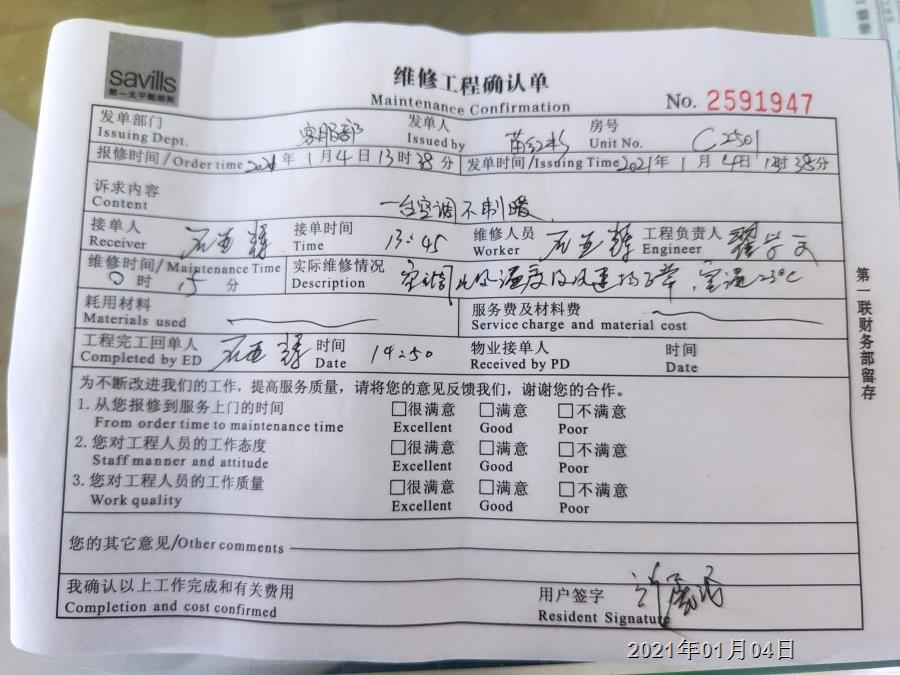 savills
第一太平戴维斯
维修工程确认单
Maintenance Confirmation
No. 2591947
发单部门 客服部 发单人 苗红彬 房号 C2501
Issuing Dept. Issued by Unit No.
报修时间/Order time 2021年1月4日13时38分 发单时间/Issuing Time 2021年1月4日13时38分
诉求内容
Content 一台空调不制暖
接单人 石亚辉 接单时间 13:45 维修人员 石亚辉 工程负责人
Receiver Time Worker Engineer
维修时间/Maintenance Time 实际维修情况 空调出风温度及风速均正常,室温23℃
0时15分 Description
耗用材料 服务费及材料费
Materials used Service charge and material cost
工程完工回单人 石亚辉 时间 14:50 物业接单人 时间
Completed by ED Date Received by PD Date
为不断改进我们的工作,提高服务质量,请将您的意见反馈我们,谢谢您的合作。
1. 从您报修到服务上门的时间 □很满意 □满意 □不满意
From order time to maintenance time Excellent Good Poor
2. 您对工程人员的工作态度 □很满意 □满意 □不满意
Staff manner and attitude Excellent Good Poor
3. 您对工程人员的工作质量 □很满意 □满意 □不满意
Work quality Excellent Good Poor
您的其它意见/Other comments
我确认以上工作完成和有关费用 用户签字
Completion and cost confirmed Resident Signature
第一联财务部留存
2021年01月04日